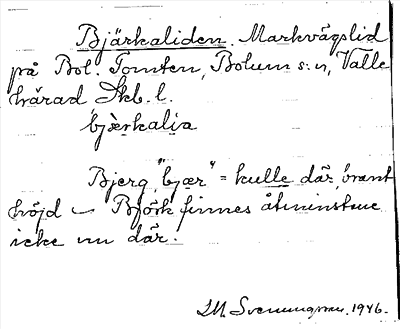 Bjärkaliden. Markvägslid
på Bol. Tomten, Bolum s:n, Valle
härad Skb. l.
bjærkalia
Bjerg, "bjær" = kulle där, brant
höjd — Björk finnes åtminstone
icke nu där.
Svenungsson. 1946.